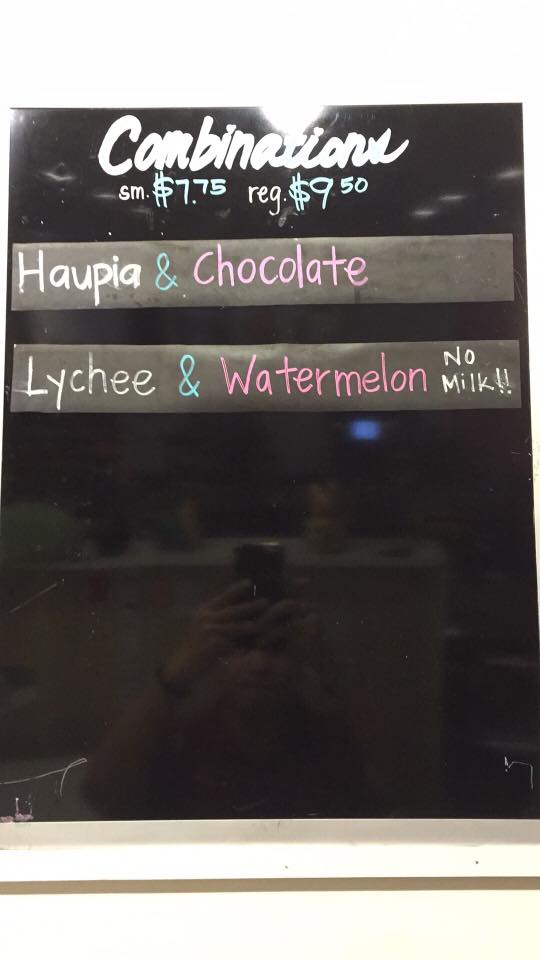 Combinations
sm. $7.75 reg. $9.50
Haupia & Chocolate
Lychee & Watermelon No Milk!!